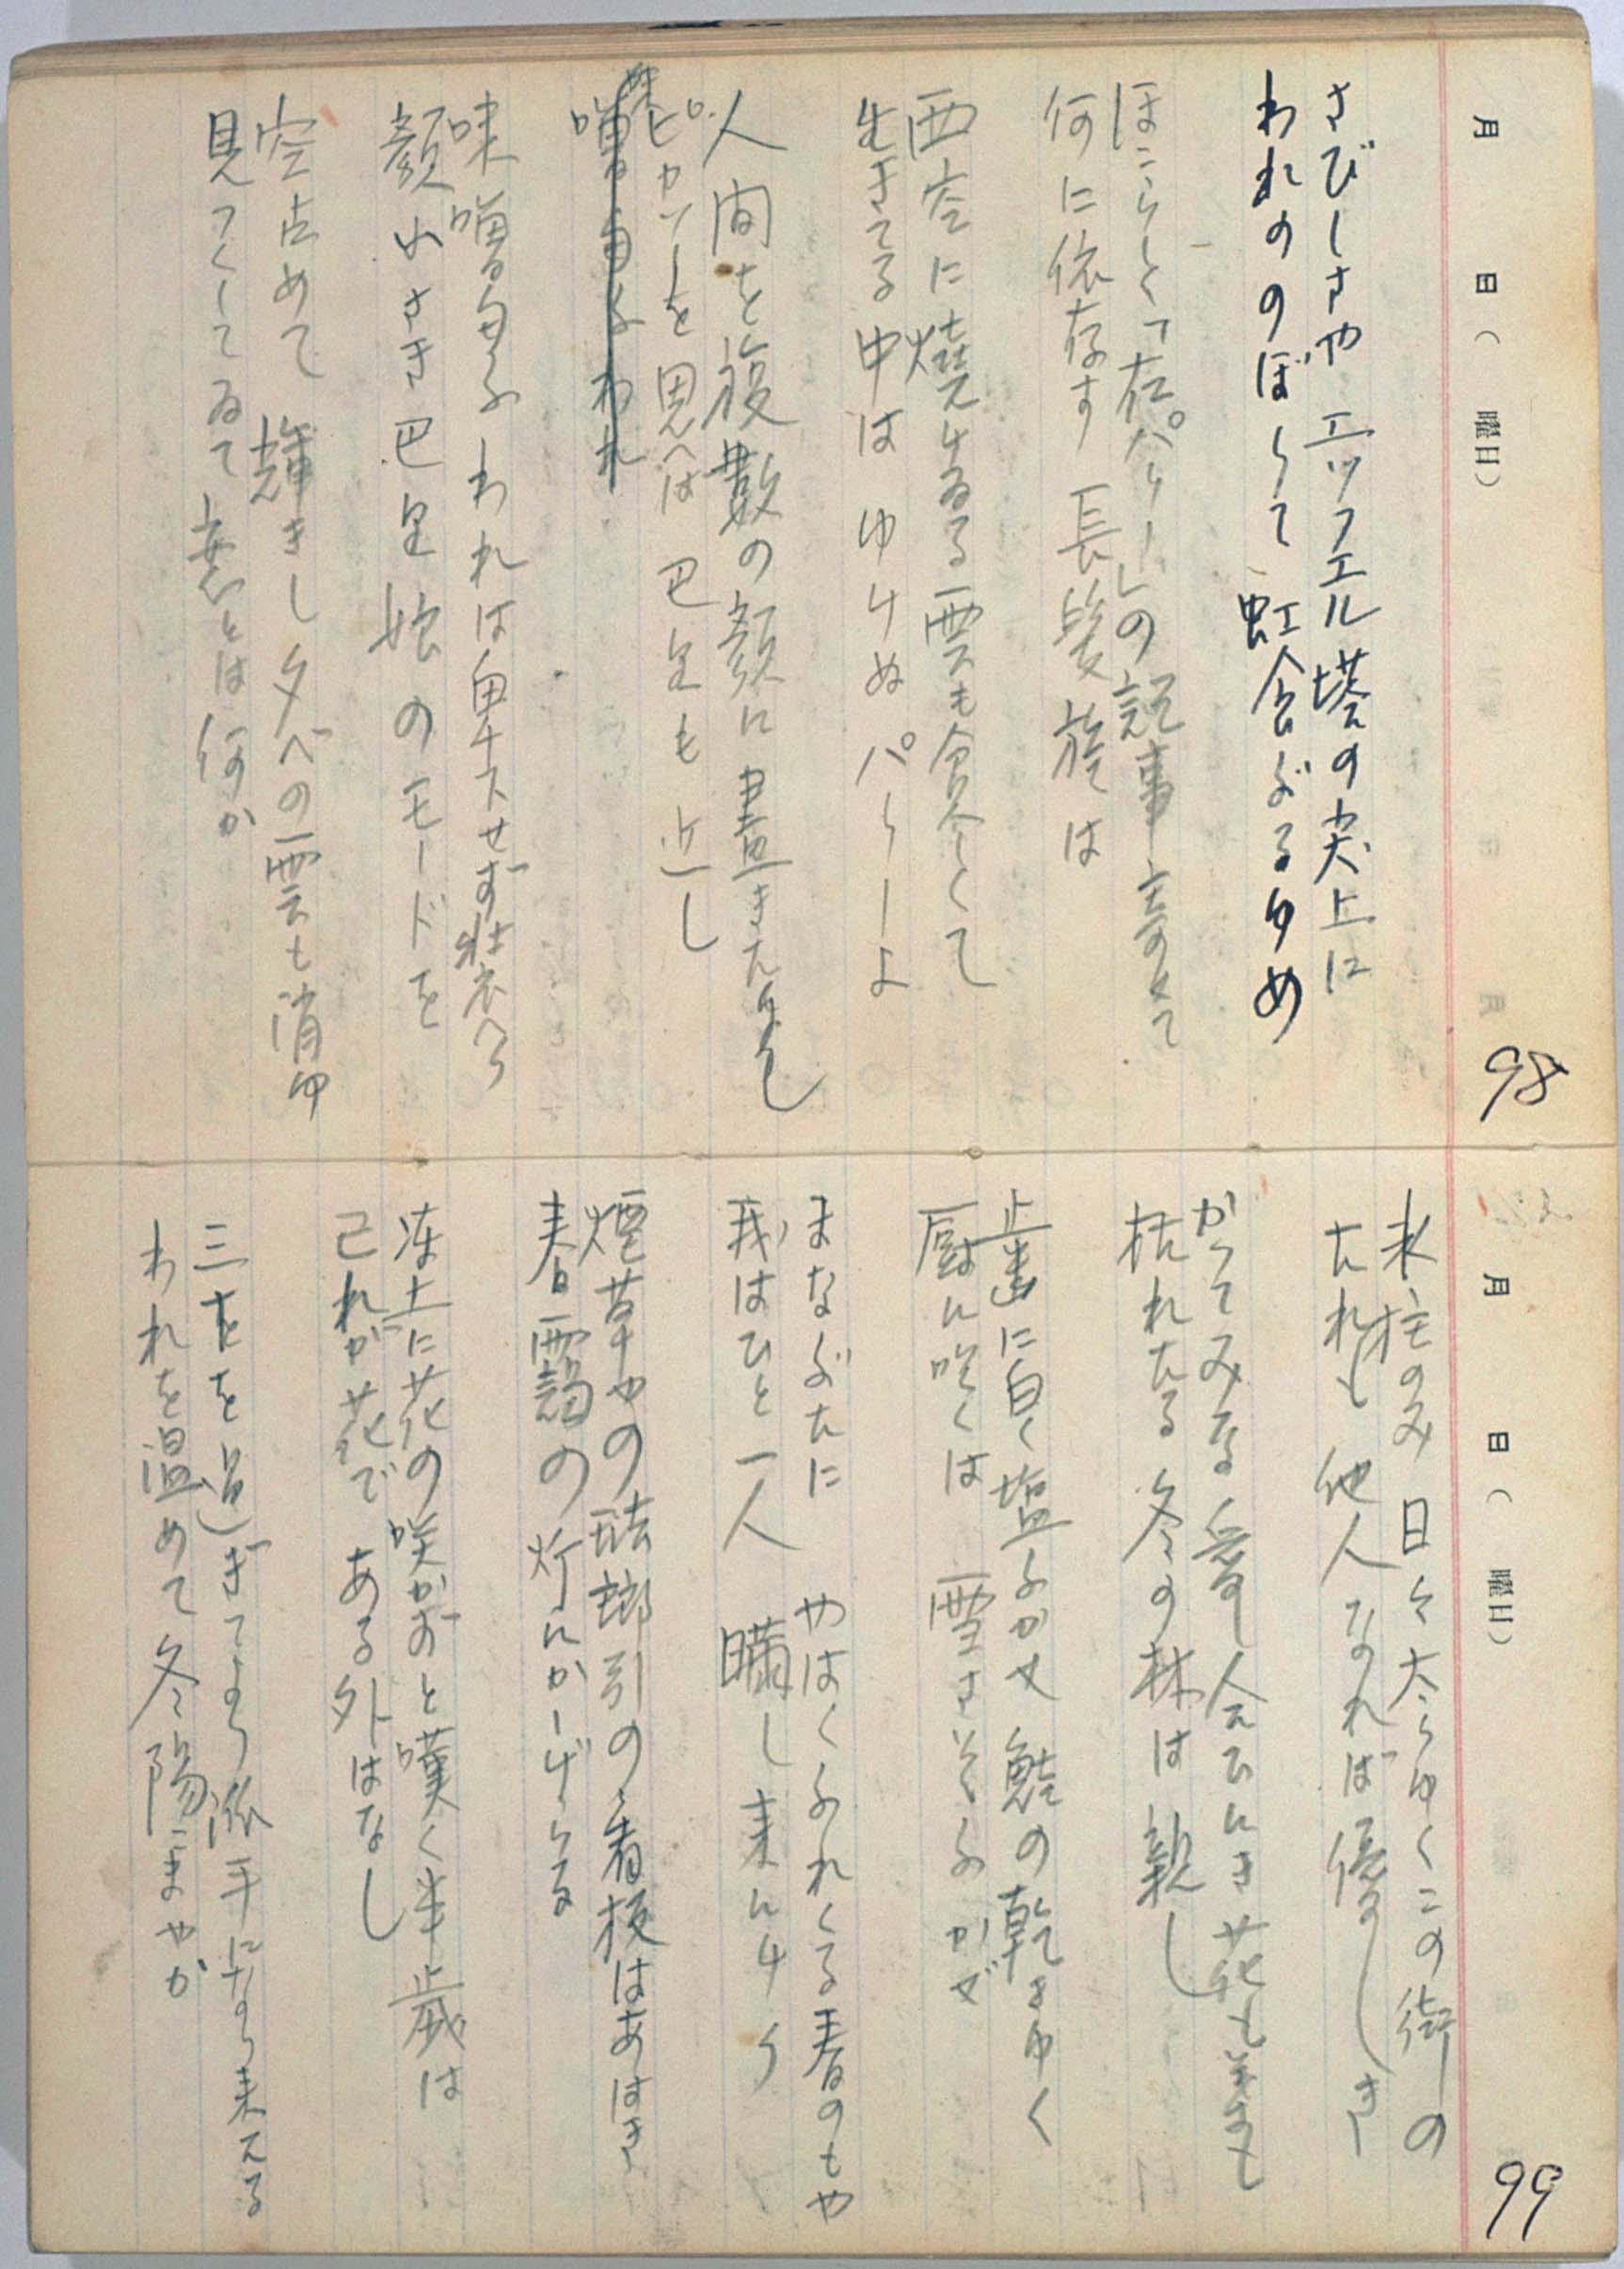 月 日（ 曜日）
98
さびしさや エッフエル塔の尖上に
われののぼりて 虹食ぶるゆめ
ほこらしく「在パリー」の記事寄せて
何に依存す 長髪族は
西空に燒けゐる雲も食へくて
生きてる中は ゆけぬパリーよ
人間を複数の顔に畫きたりし
ピカソーを思へば 巴里も近し
味噌匂ふわれ
味噌匂ふ われは魚チスせず装へり
顔小さき巴里娘のモードを
空占めて 輝きし夕べの雲も消ゆ
見つくしてゐて 妻とは何か
月 日（ 曜日）
99
氷柱のみ 日々太りゆくこの街の
たれも 他人なれば優しき
かつてみな 愛し合ひにき花も実も
枯れたる 冬の林は 親し
歯に白く塩ふかせ 鮭の乾きゆく
厨に吹くは 雪さそふかぜ
まなぶたに やはくふれくる春のもや
我はひと一人 瞞し来にけり
煙草やの琺瑯引の看板はあはき
春靄の灯にかげりる
凍土に花の咲かずと嘆く半歳は
己れが花で ある外はなし
三十を過ぎてより派手になり来える
われを温めて 冬陽こまやか